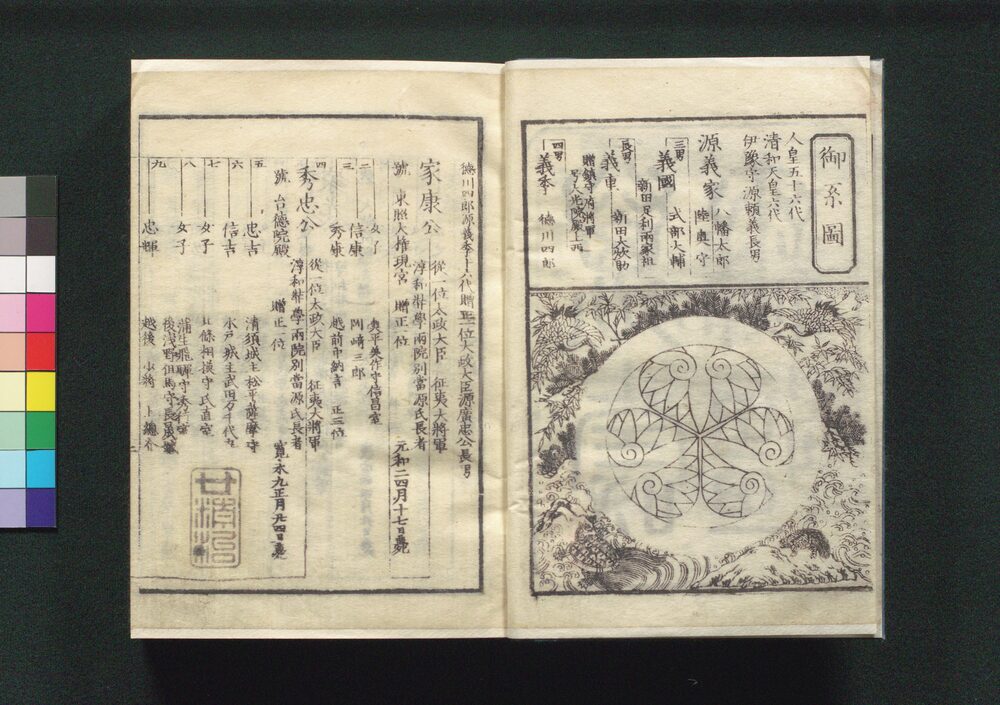 御系圖
人皇五十六代
清和天皇六代
伊豫守源頼義長男
源義家 八幡太郎
陸奥守
三男
義國 式部大輔
新田足利兩家祖
長男
義重 新田大炊助
贈鎮守府將軍
四男
義季 德川四郎
德川四郎源義季十六代贈正一位太政大臣源廣忠公長男
家康公 從一位太政大臣 征夷大將軍
淳和奨學兩院別當源氏長者
號 東照大権現宮 贈正一位 元和二四月十七日薨
二 女子 奥平美作守信昌室
信康 岡崎三郎
三 秀康 越前中納言 正三位
四 秀忠公 從一位太政大臣 征夷大將軍
淳和奨學兩院別當源氏長者
號 台德院殿 贈正一位 寛永九正月廿四日薨
五 忠吉 清須城主松平薩摩守
六 信吉 水戸城主武田万千代丸
七 女子 北條相模守氏直室
八 女子 蒲生飛騨守秀行室
後浅野但馬守長晟室
九 忠輝 越後 上總介